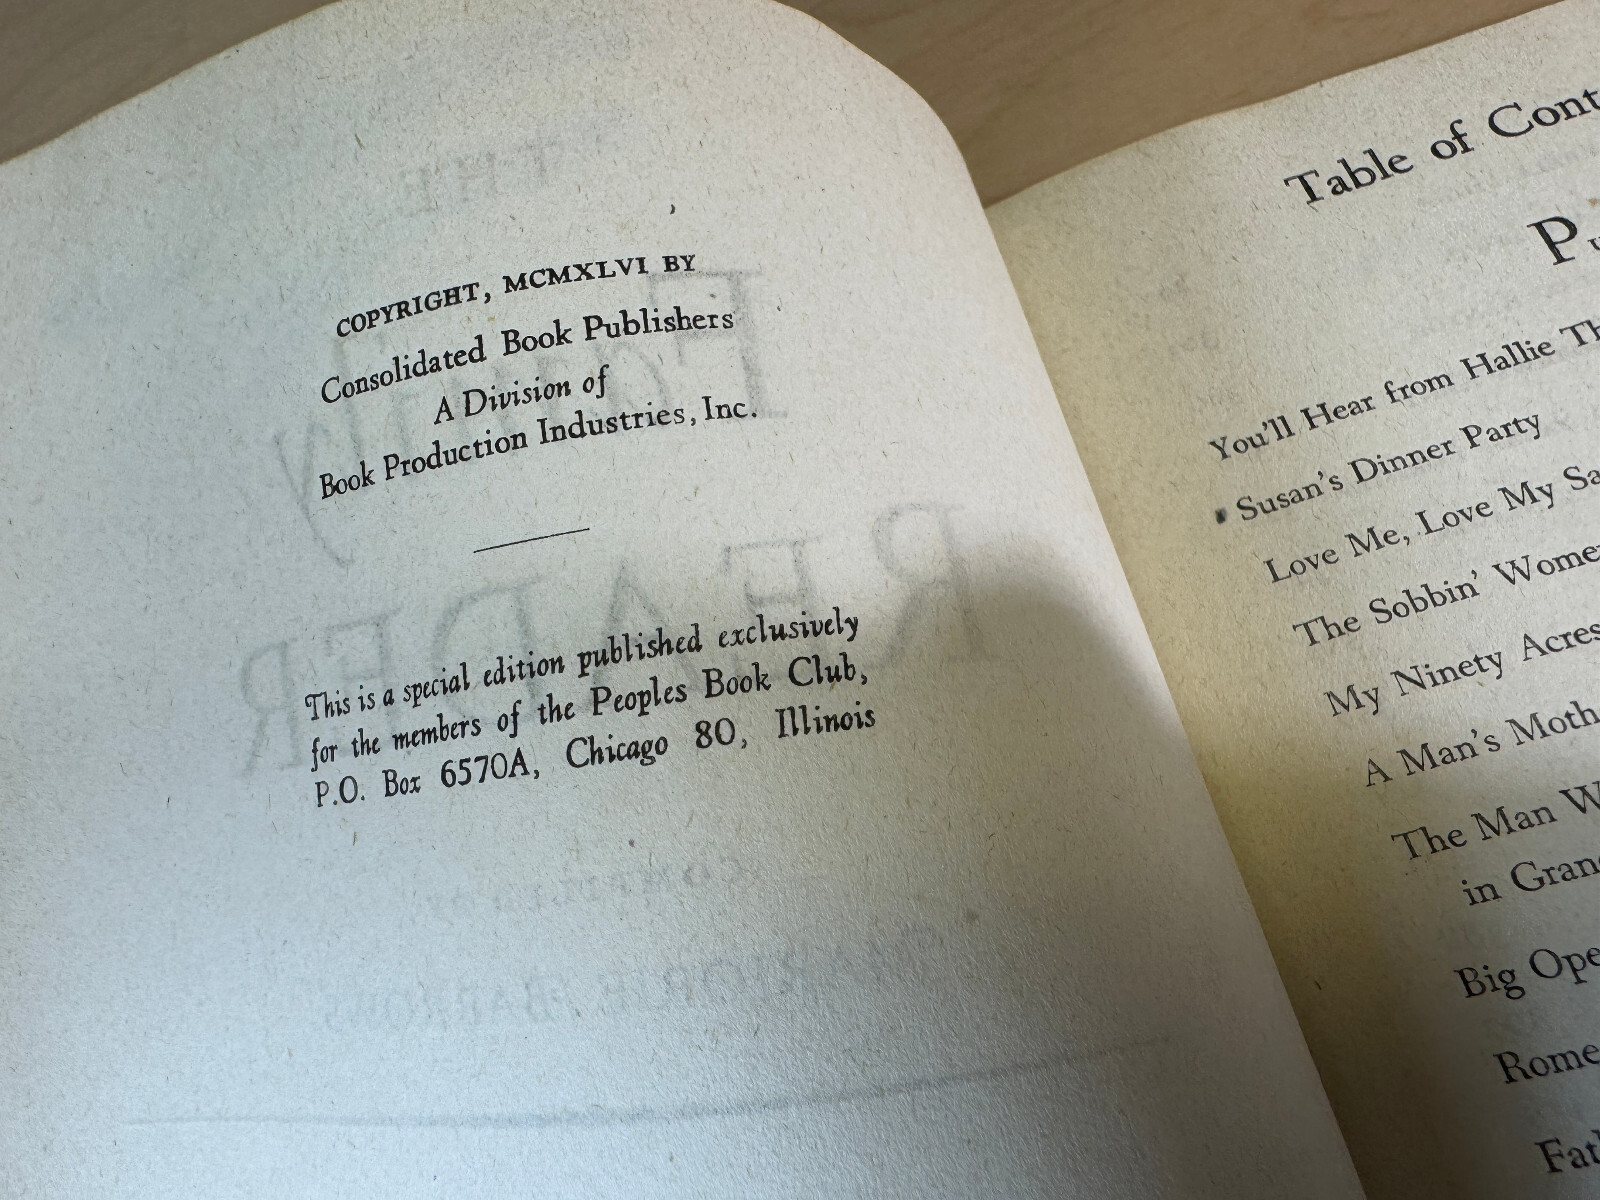 COPYRIGHT, MCMXLVI BY
Consolidated Book Publishers
A Division of
Book Production Industries, Inc.
This is a special edition published exclusively
for the members of the Peoples Book Club,
P.O. Box 6570A, Chicago 80, Illinois
Table of Cont
You'll Hear from Hallie Th
Susan's Dinner Party
Love Me, Love My Sa
The Sobbin' Wome
My Ninety Acres
A Man's Moth
The Man W
in Gran
Big Ope
Rome
Fat
THE
READER
COMPILED BY
MARJORIE BARROWS